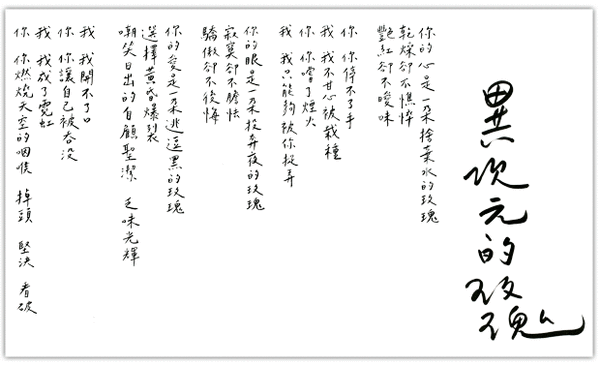 異次元的玫瑰
你的心是一朵捨棄水的玫瑰
乾燥卻不憔悴
艷紅卻不曖昧
你 你停不了手
我 我不甘心被栽種
你 你嚐了煙火
我 我只能夠被你捉弄
你的眼是一朵捉弄夜的玫瑰
寂寞卻不膽怯
驕傲卻不後悔
你的愛是一朵逃逗黑的玫瑰
選擇黃昏爆裂
嘲笑日出的自顧聖潔 乏味光輝
我 我開不了口
你 你讓自己被吞沒
我 我成了霓虹
你 你燃燒天空的咽喉 掉頭 堅決 看破